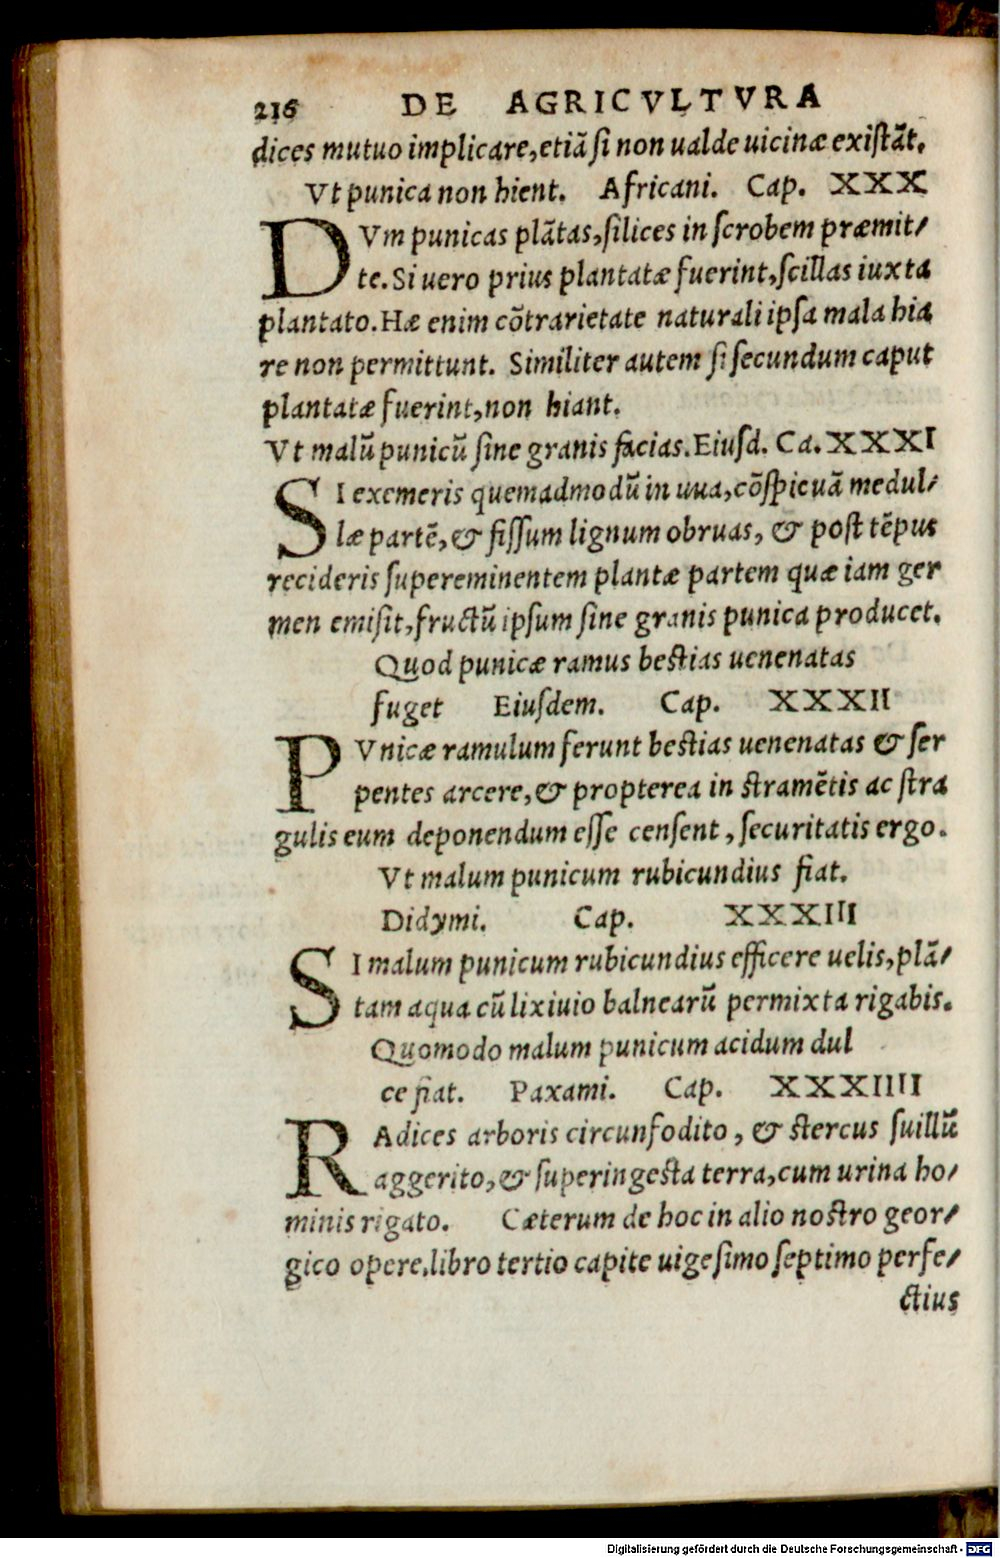 216 DE AGRICVLTVRA
dices mutuo implicare, etiã si non ualde uicinæ existãt.
Vt punica non hient. Africani. Cap. XXX
DVm punicas plãtas, silices in scrobem præmit/
te. Si uero prius plantatæ fuerint, scillas iuxta
plantato. Hæ enim cõtrarietate naturali ipsa mala hia
re non permittunt. Similiter autem si secundum caput
plantatæ fuerint, non hiant.
Vt malũ punicũ sine granis facias. Eiusd. Ca. XXXI
SI exemeris quemadmodũ in uua, cõspicuã medul/
læ partẽ, & fissum lignum obruas, & post tẽpus
recideris supereminentem plantæ partem quæ iam ger
men emisit, fructũ ipsum sine granis punica producet.
Quod punicæ ramus bestias uenenatas
fuget Eiusdem. Cap. XXXII
PVnicæ ramulum ferunt bestias uenenatas & ser
pentes arcere, & propterea in stramẽtis ac stra
gulis eum deponendum esse censent, securitatis ergo.
Vt malum punicum rubicundius fiat.
Didymi. Cap. XXXIII
SI malum punicum rubicundius efficere uelis, plã/
tam aqua cũ lixiuio balnearũ permixta rigabis.
Quomodo malum punicum acidum dul
ce fiat. Paxami. Cap. XXXIIII
RAdices arboris circunfodito, & stercus suillũ
aggerito, & superingesta terra, cum urina ho/
minis rigato. Cæterum de hoc in alio nostro geor/
gico opere, libro tertio capite uigesimo septimo perfe/
ctius
Digitalisierung gefördert durch die Deutsche Forschungsgemeinschaft - DFG